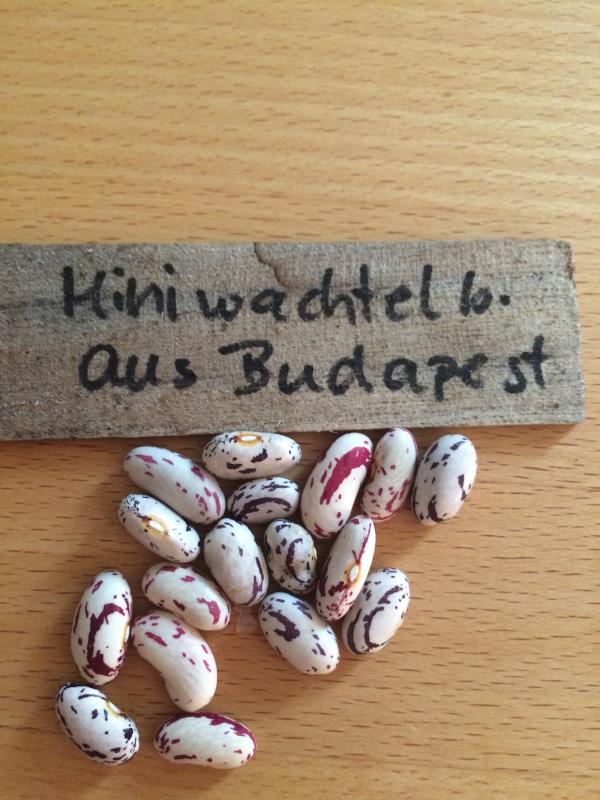 Miniwachtel b.
aus Budapest